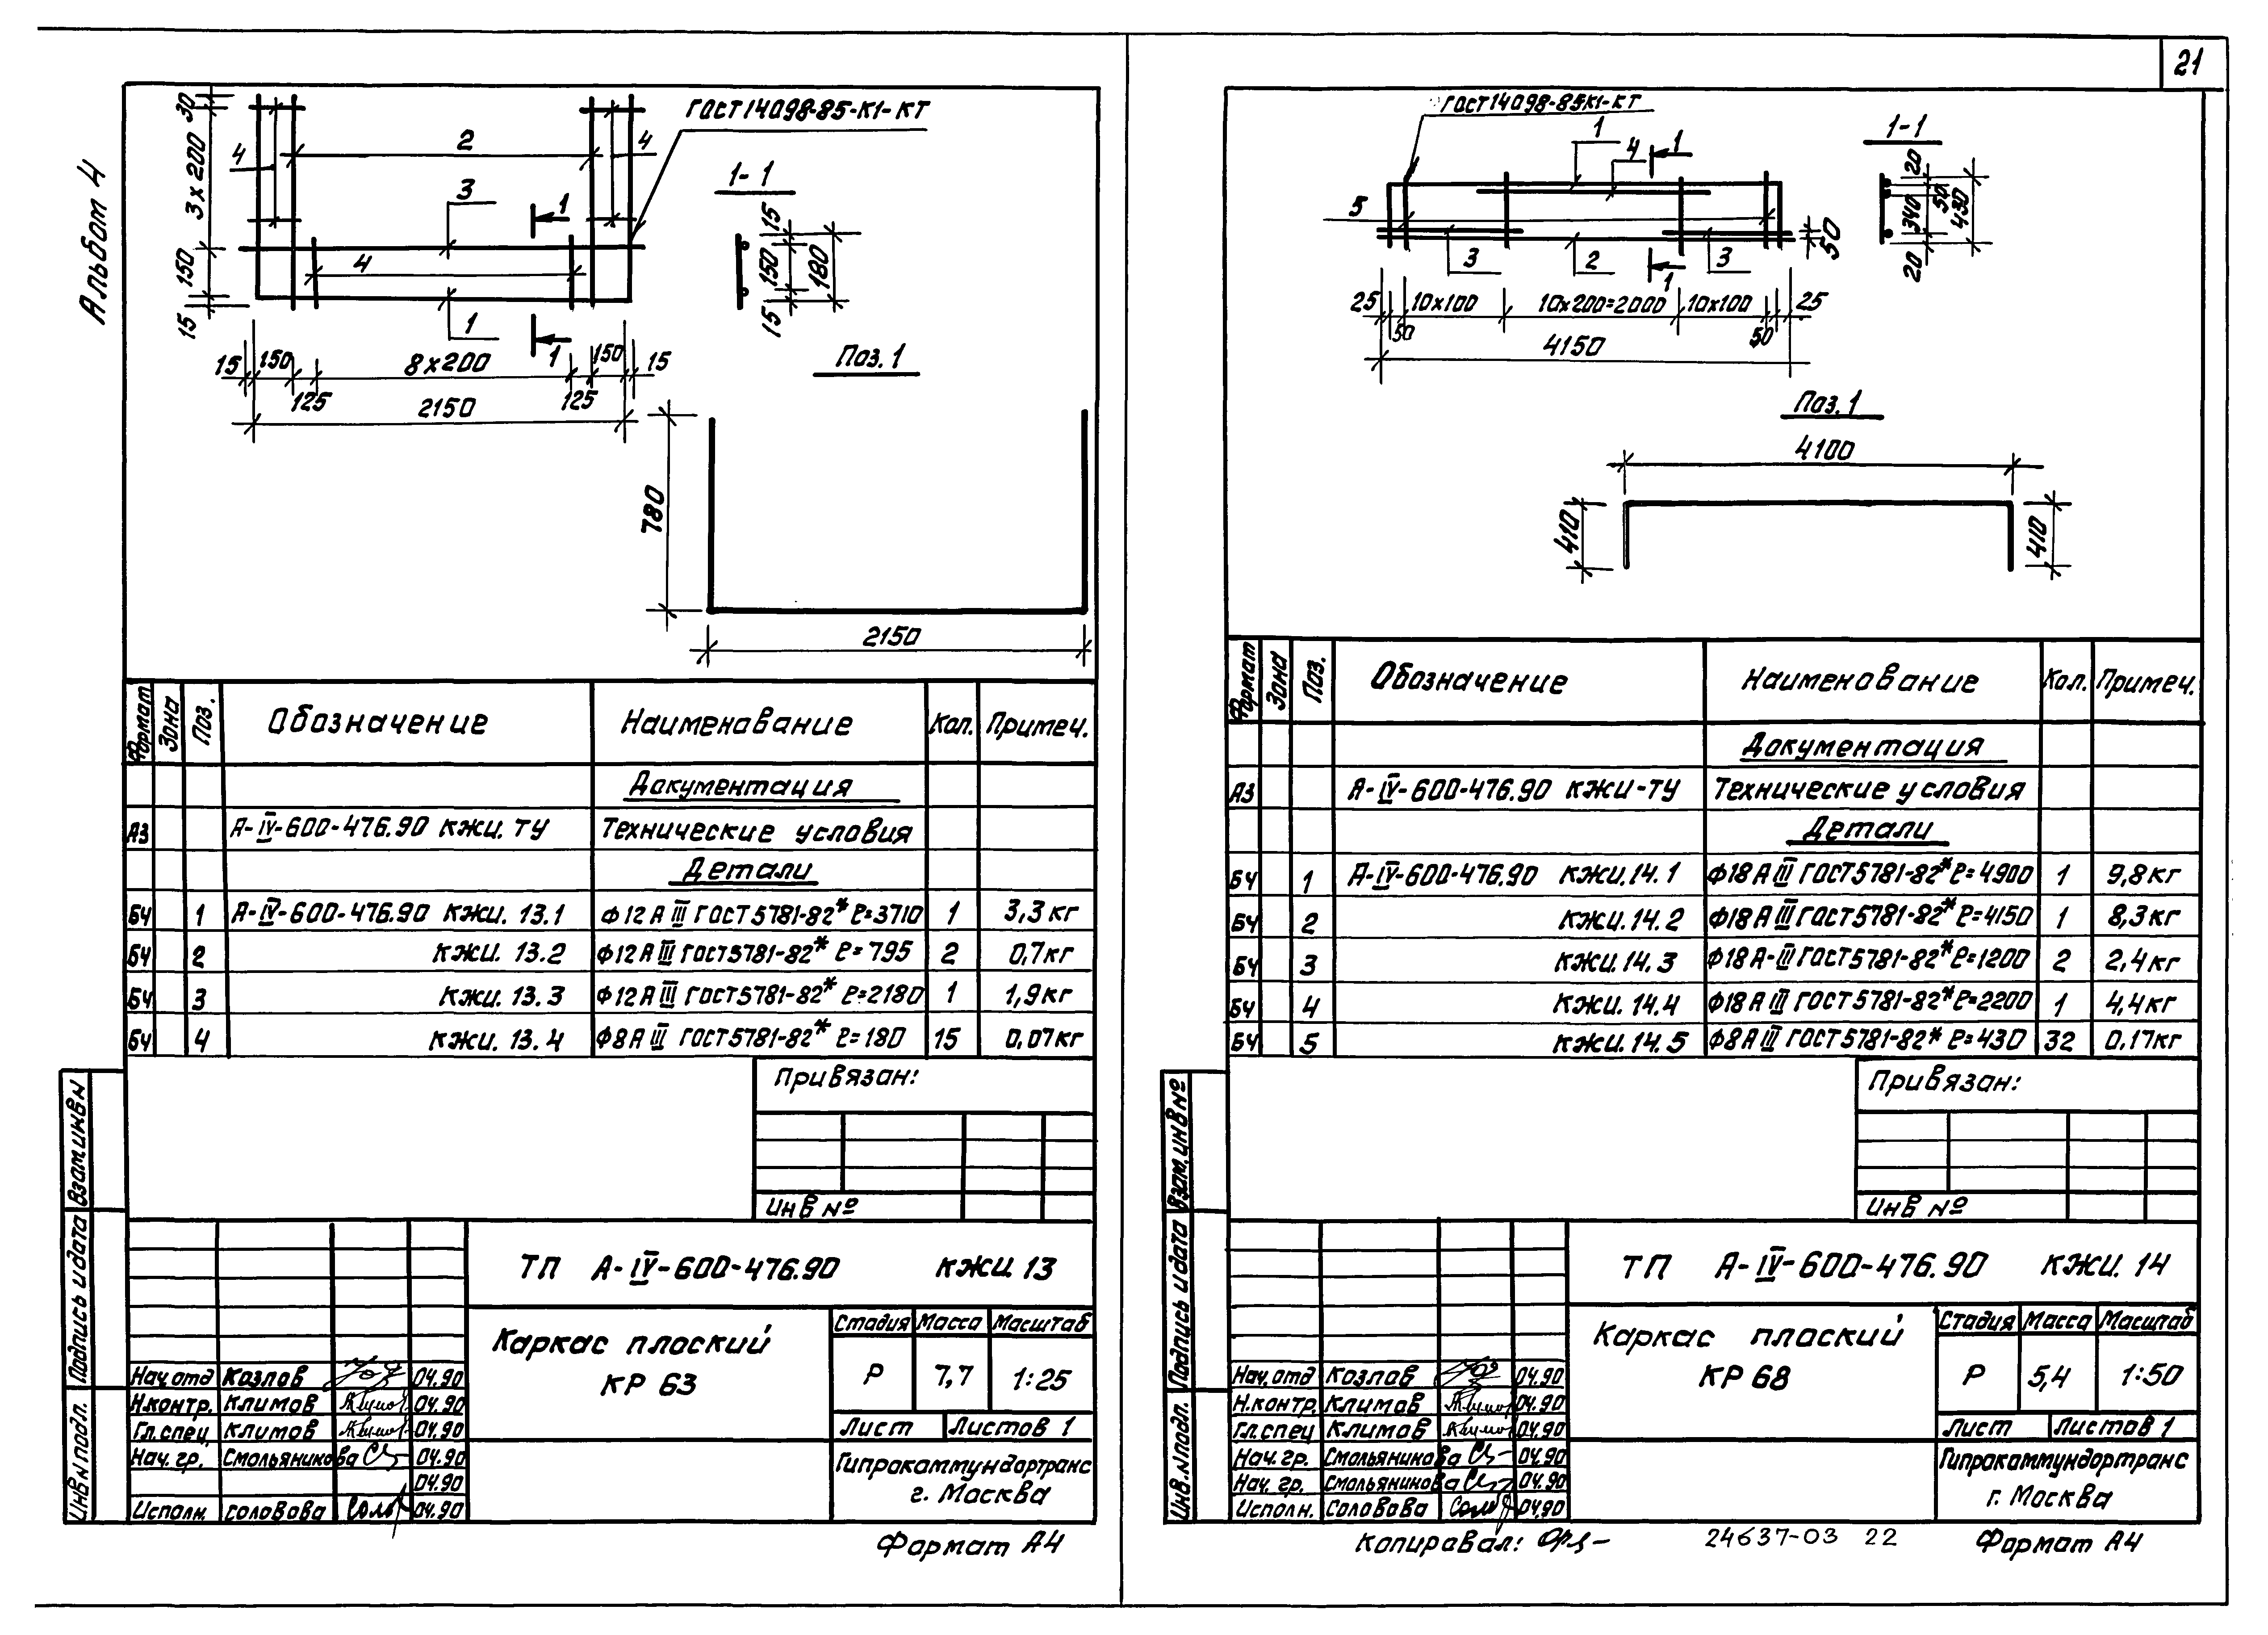 21
Альбом 4
ГОСТ14098-85-К1-КТ
30
3х200
150
15
4
2
4
3
1
4
1
1
15 150 8х200 150 15
125 125
2150
1-1
15
150
180
15
Поз.1
780
2150
Формат Зона Поз. Обозначение Наименование Кол. Примеч.
Документация
А3 А-IV-600-476.90 КЖИ.ТУ Технические условия
Детали
БЧ 1 А-IV-600-476.90 КЖИ. 13.1 Ф12АIII ГОСТ5781-82* ℓ=3710 1 3,3кг
БЧ 2 КЖИ. 13.2 Ф12АIII ГОСТ5781-82* ℓ=795 2 0,7кг
БЧ 3 КЖИ. 13.3 Ф12АIII ГОСТ5781-82* ℓ=2180 1 1,9кг
БЧ 4 КЖИ. 13.4 Ф8АIII ГОСТ5781-82* ℓ=180 15 0,07кг
Привязан:
Инв №
ТП А-IV-600-476.90 КЖИ. 13
Каркас плоский
КР 63
Стадия Масса Масштаб
Р 7,7 1:25
Лист Листов 1
Гипрокаммундортранс
г. Москва
Нач.отд Козлов 04.90
Н.контр. Климов 04.90
Гл.спец Климов 04.90
Нач. гр. Смольянинова 04.90
04.90
Исполн. Соловова 04.90
Взам инв н
Подпись и дата
Инв н подл.
Формат А4
ГОСТ14098-85К1-КТ
1
4
1
5
3
2
3
1
50
25 10х100 10х200=2000 10х100 25
50 50
4150
1-1
20
50
340
430
20
Поз.1
4100
410
410
Формат Зона Поз. Обозначение Наименование Кол. Примеч.
Документация
А3 А-IV-600-476.90 КЖИ-ТУ Технические условия
Детали
БЧ 1 А-IV-600-476.90 КЖИ.14.1 Ф18АIII ГОСТ5781-82* ℓ=4900 1 9,8кг
БЧ 2 КЖИ.14.2 Ф18АIII ГОСТ5781-82* ℓ=4150 1 8,3кг
БЧ 3 КЖИ.14.3 Ф18А-III ГОСТ5781-82* ℓ=1200 2 2,4кг
БЧ 4 КЖИ.14.4 Ф18АIII ГОСТ5781-82* ℓ=2200 1 4,4кг
БЧ 5 КЖИ.14.5 Ф8АIII ГОСТ5781-82* ℓ=430 32 0,17кг
Привязан:
Инв №
ТП А-IV-600-476.90 КЖИ. 14
Каркас плоский
КР 68
Стадия Масса Масштаб
Р 5,4 1:50
Лист Листов 1
Гипрокаммундортранс
г. Москва
Нач.отд Козлов 04.90
Н.контр. Климов 04.90
Гл.спец Климов 04.90
Нач. гр. Смольянинова 04.90
Нач. гр. Смольянинова 04.90
Исполн. Соловова 04.90
Взам.инв №
Подпись и дата
Инв.N подл.
Копировал:
24637-03 22
Формат А4